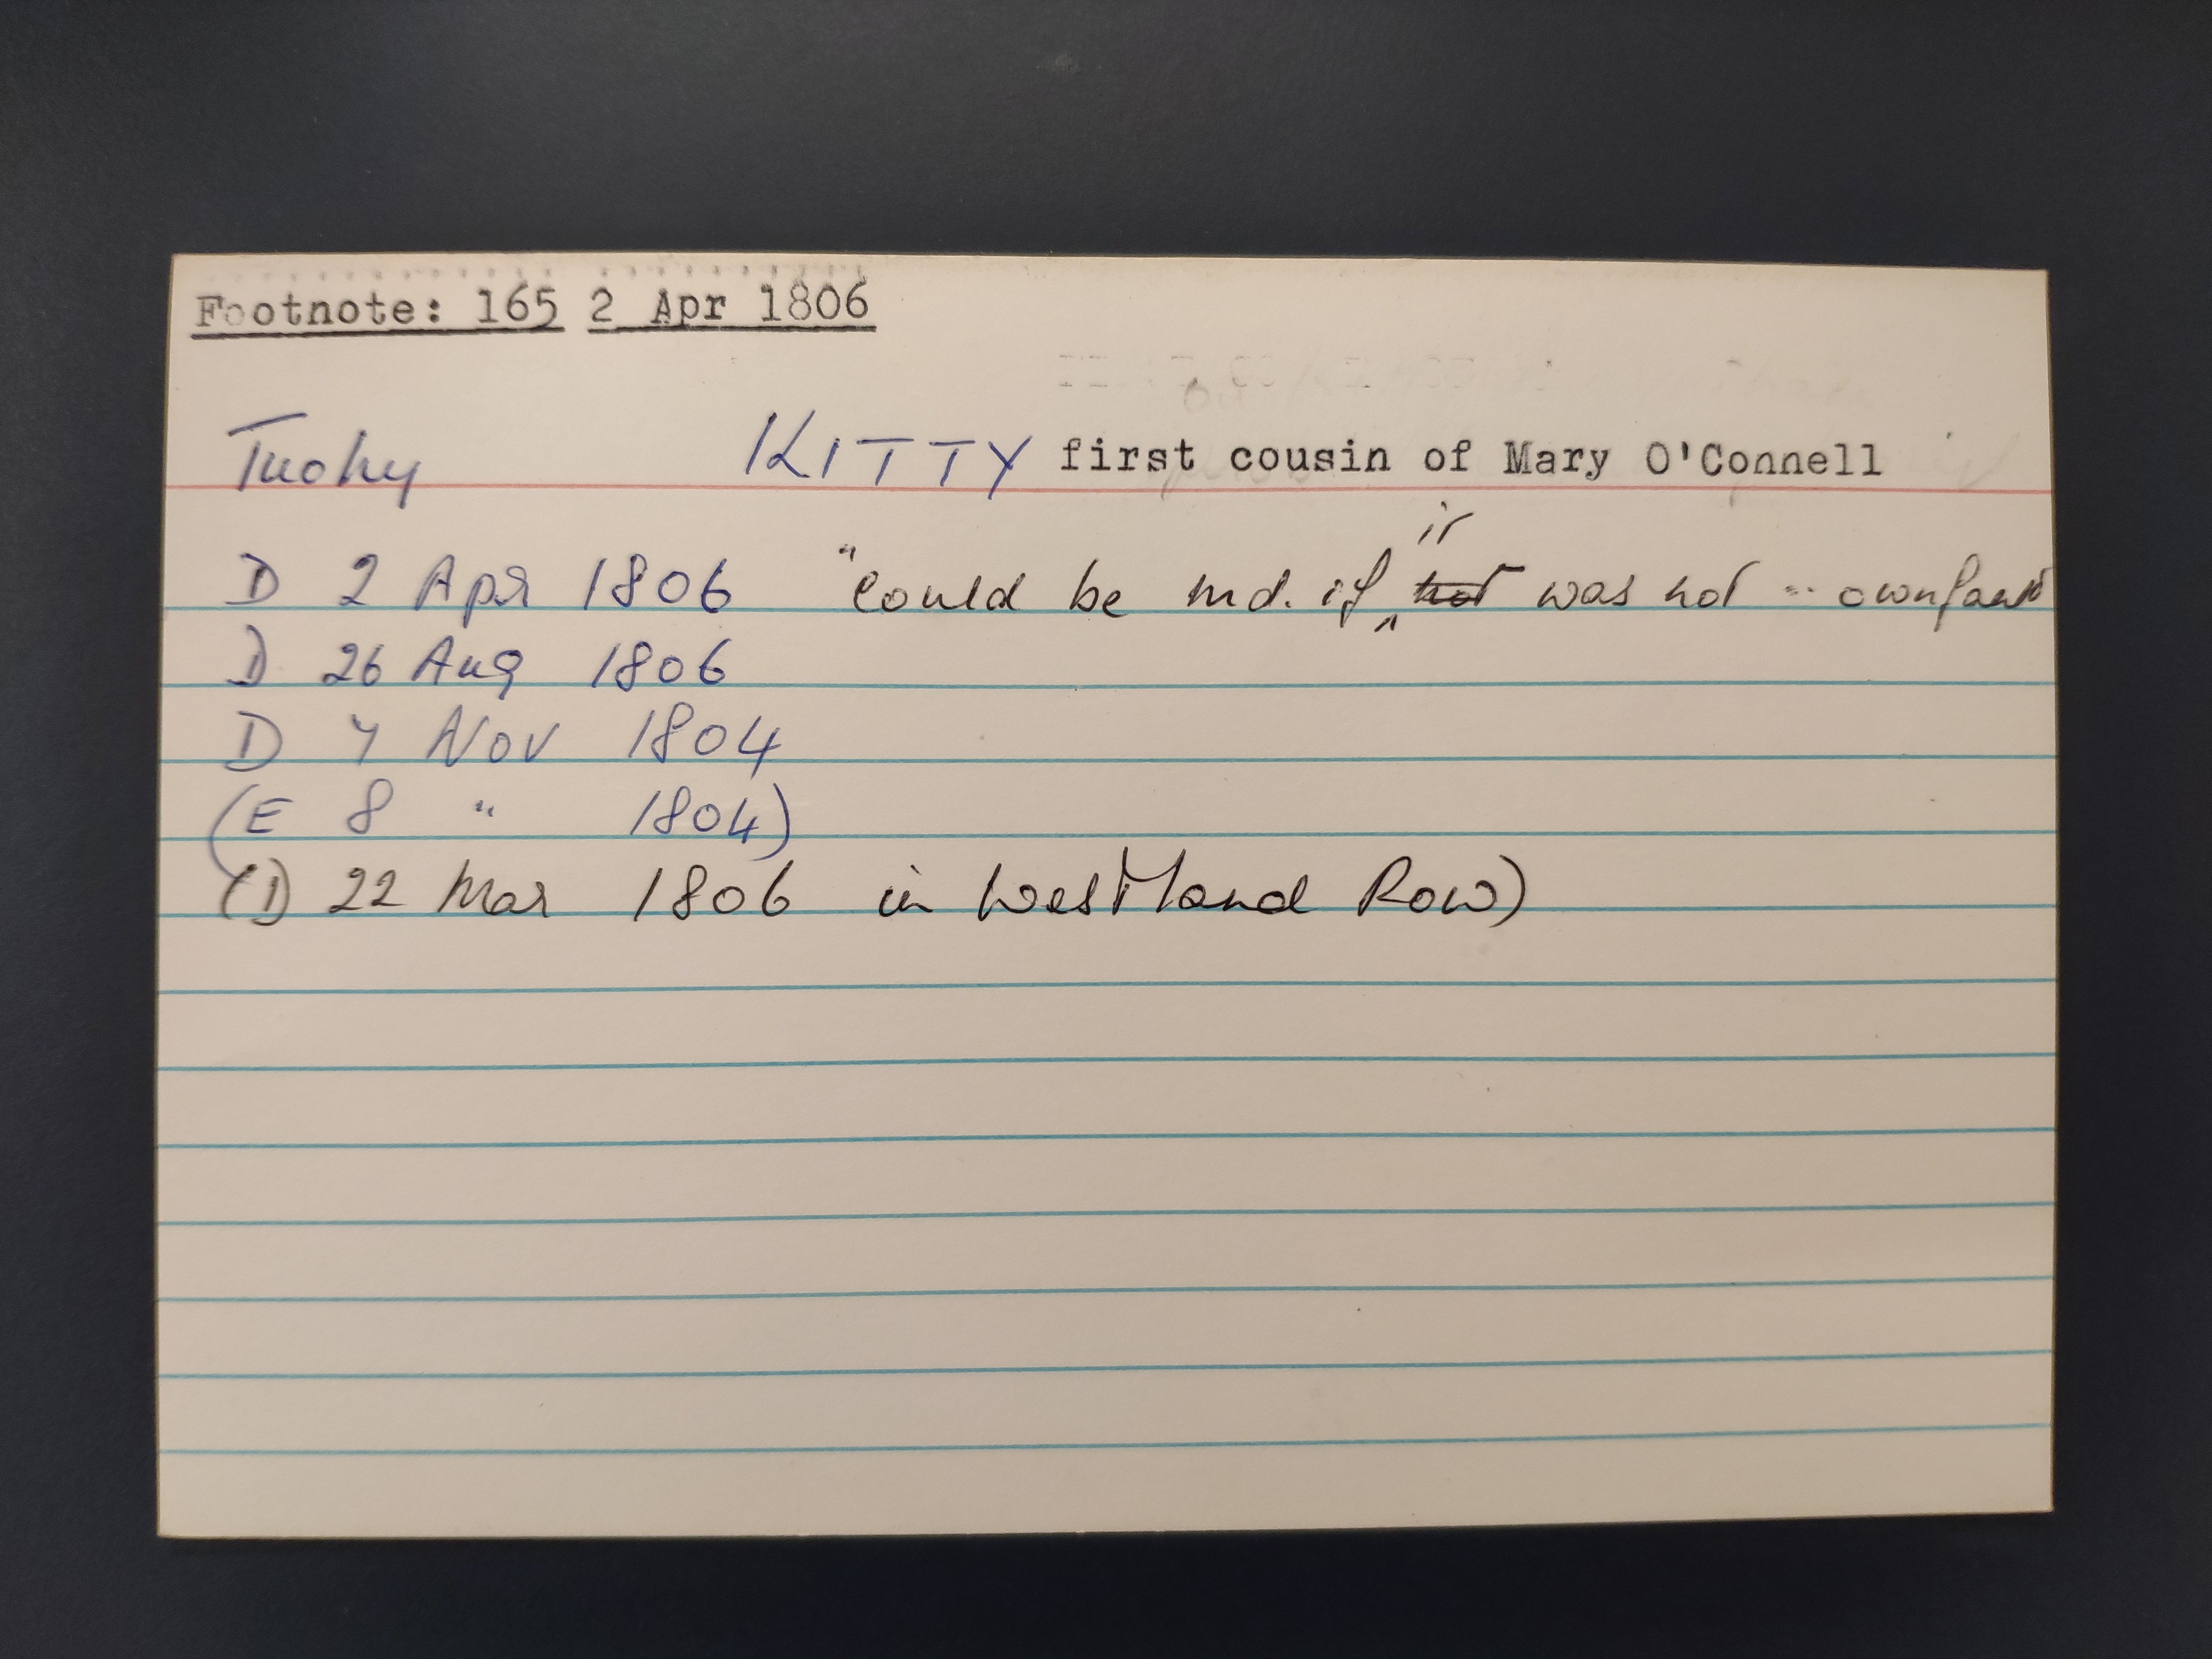 Footnote: 165 2 Apr 1806
Tuohy KITTY first cousin of Mary O'Connell
it
D 2 Apr 1806 "Could be md. if ^ not was not ... own fault
D 26 Aug 1806
D 7 Nov 1804
(E 8 " 1804)
(D 22 Mar 1806 in Westland Row)